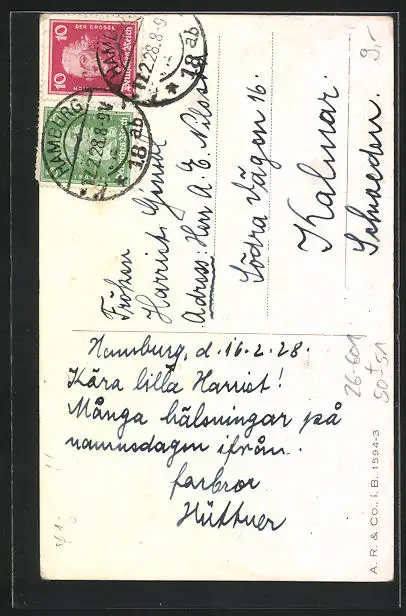 10 DER GROSSE 10
Deutsches Reich
HAMBURG
17.2.28.8-9
* 18 ab
HAMBURG
28.8-9
* 18 ab
Fröken
Harriet
Adress: Herr A. E. Nilsson
Södra Vägen 16.
Kalmar.
Schweden.
9,-
Hamburg, d. 16.2.28.
Kära lilla Harriet!
Många hälsningar på
namnsdagen ifrån
farbror
Hüttner
26-601
50+51
A. R. & CO., i. B. 1594-3